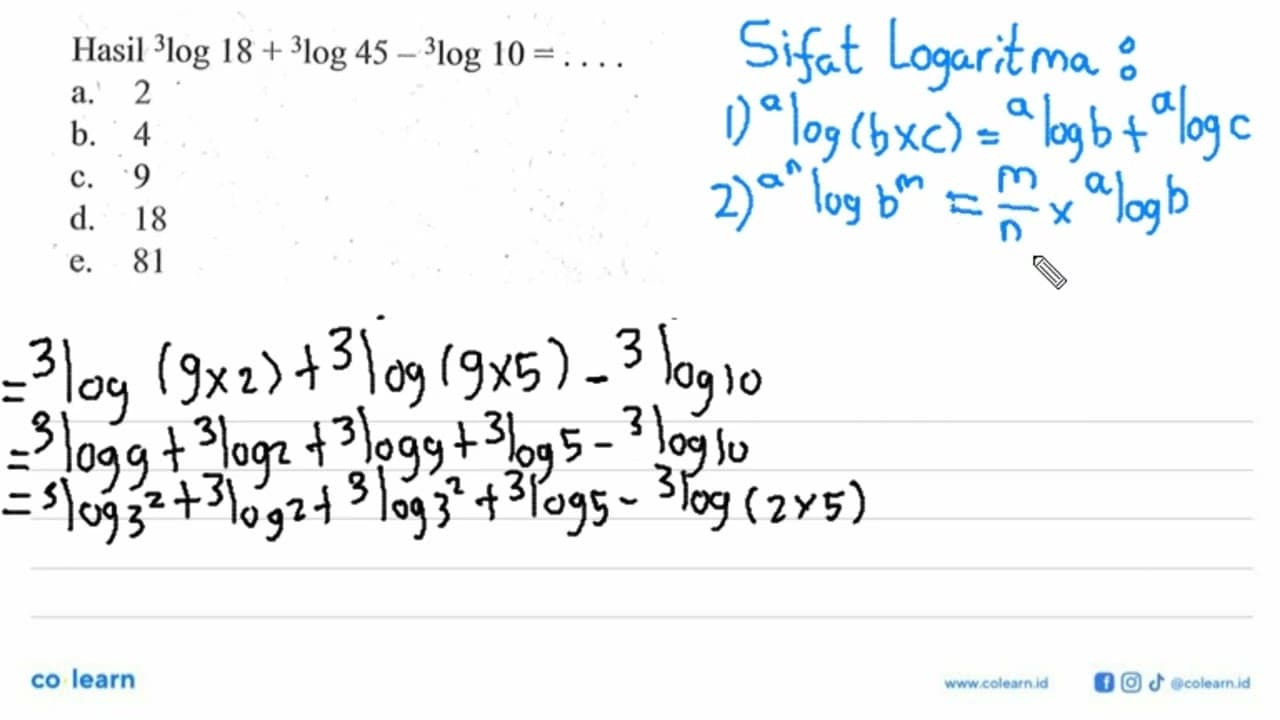 Hasil ³log 18 + ³log 45 – ³log 10 = . . . .
a. 2
b. 4
c. 9
d. 18
e. 81
Sifat Logaritma :
1) ᵃlog (b×c) = ᵃlog b + ᵃlog c
2) ᵃⁿ log bᵐ = m/n × ᵃlog b
= ³log (9×2) + ³log (9×5) - ³log 10
= ³log 9 + ³log 2 + ³log 9 + ³log 5 - ³log 10
= ³log 3² + ³log 2 + ³log 3² + ³log 5 - ³log (2×5)
co learn
www.colearn.id
@colearn.id